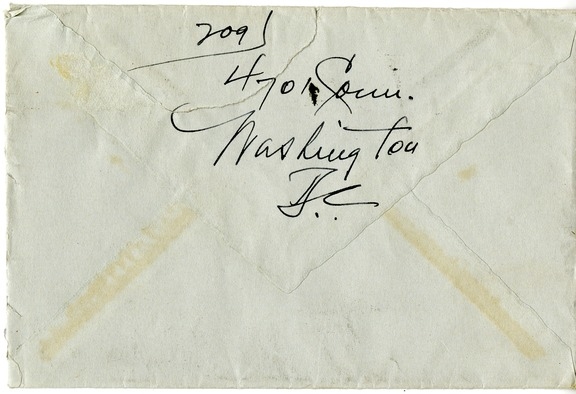 209
4701 Conn.
Washington
D.C.